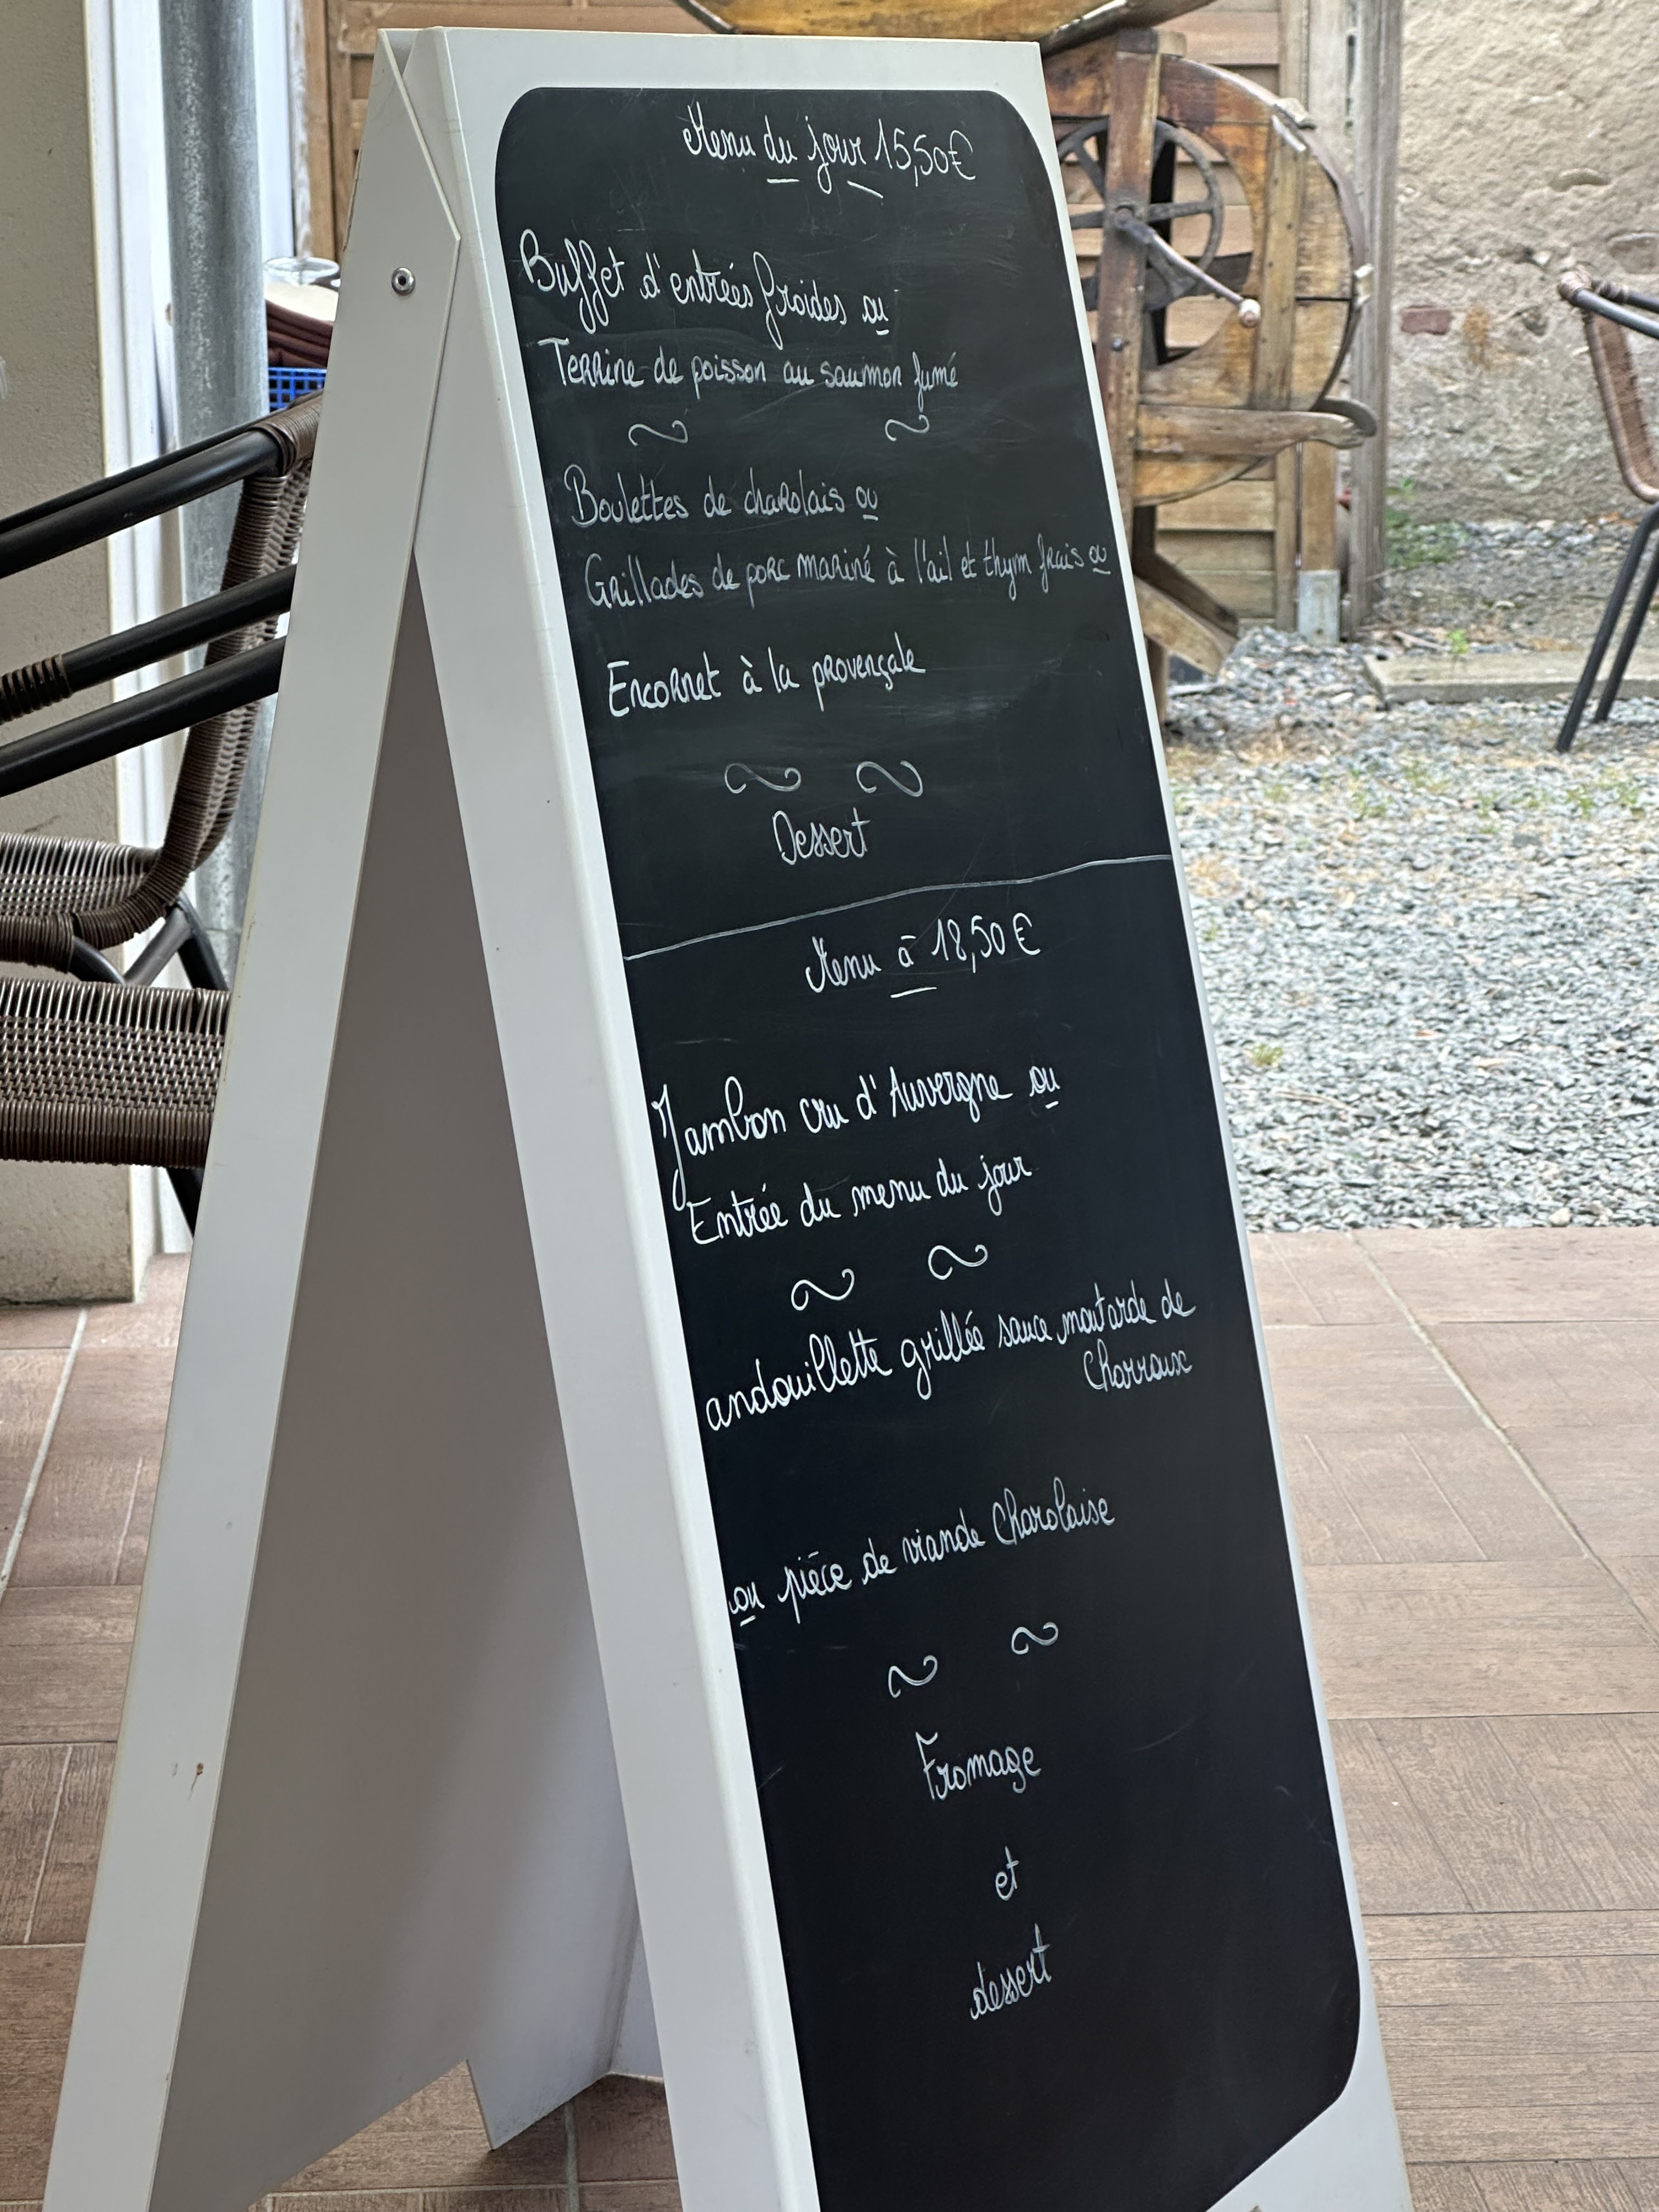 Menu du jour 15,50€
Buffet d'entrées froides ou
Terrine de poisson au saumon fumé
Boulettes de charolais ou
Grillades de porc mariné à l'ail et thym frais ou
Encornet à la provençale
Dessert
Menu à 18,50€
Jambon cru d'Auvergne ou
Entrée du menu du jour
andouillette grillée sauce moutarde de
Charroux
ou pièce de viande Charolaise
Fromage
et
dessert